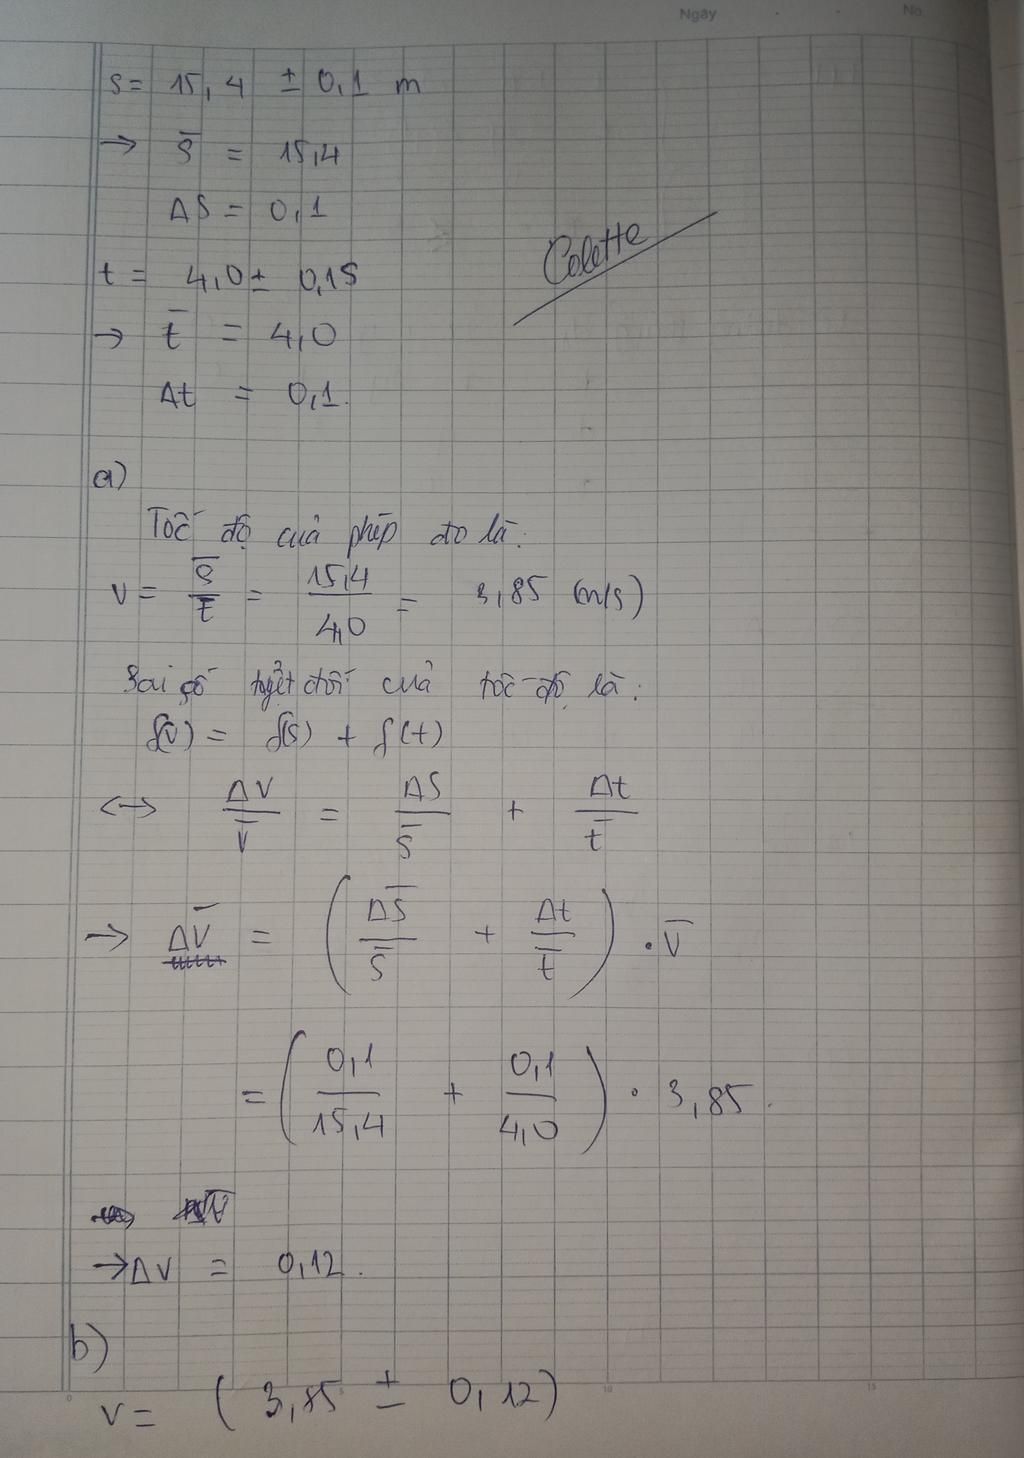 Ngày . . No.
S = 15,4 ± 0,1 m
→ S̄ = 15,4
ΔS = 0,1
Colette
t = 4,0 ± 0,1s
→ t̄ = 4,0
Δt = 0,1.
a)
Tốc độ cuả phép đo là:
v = S̄/t̄ = 15,4/4,0 = 3,85 (m/s)
Sai số tuyệt đối cuả tốc độ là:
δ(v) = δ(s) + δ(t)
<-> ΔV/V̄ = ΔS/S̄ + Δt/t̄
→ ΔV̄ = (ΔS̄/S̄ + Δt/t̄) . V̄
= (0,1/15,4 + 0,1/4,0) . 3,85.
→ ΔV = 0,12.
b)
v = (3,85 ± 0,12)
0 5 10 15